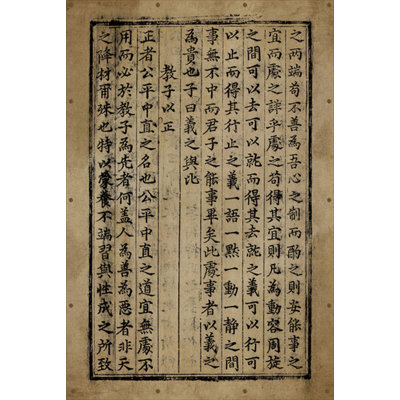 之兩端苟不善爲吾心之劊而酌之則安能事之
宜而處之諱乎處之苟得其宜則凡爲動容周旋
之間可以去可以就而得其去就之義可以行可
以止而得其行止之義一語一黙一動一静之間
事無不中而君子之能事畢矣此處事者以義之
為貴也子曰義之與比
教子以正
正者公平中直之名也公平中直之道宜無處不
用而必於教子為先者何盖人為善為惡者非天
之降材爾殊也特以蒙養不端習與性成之所致